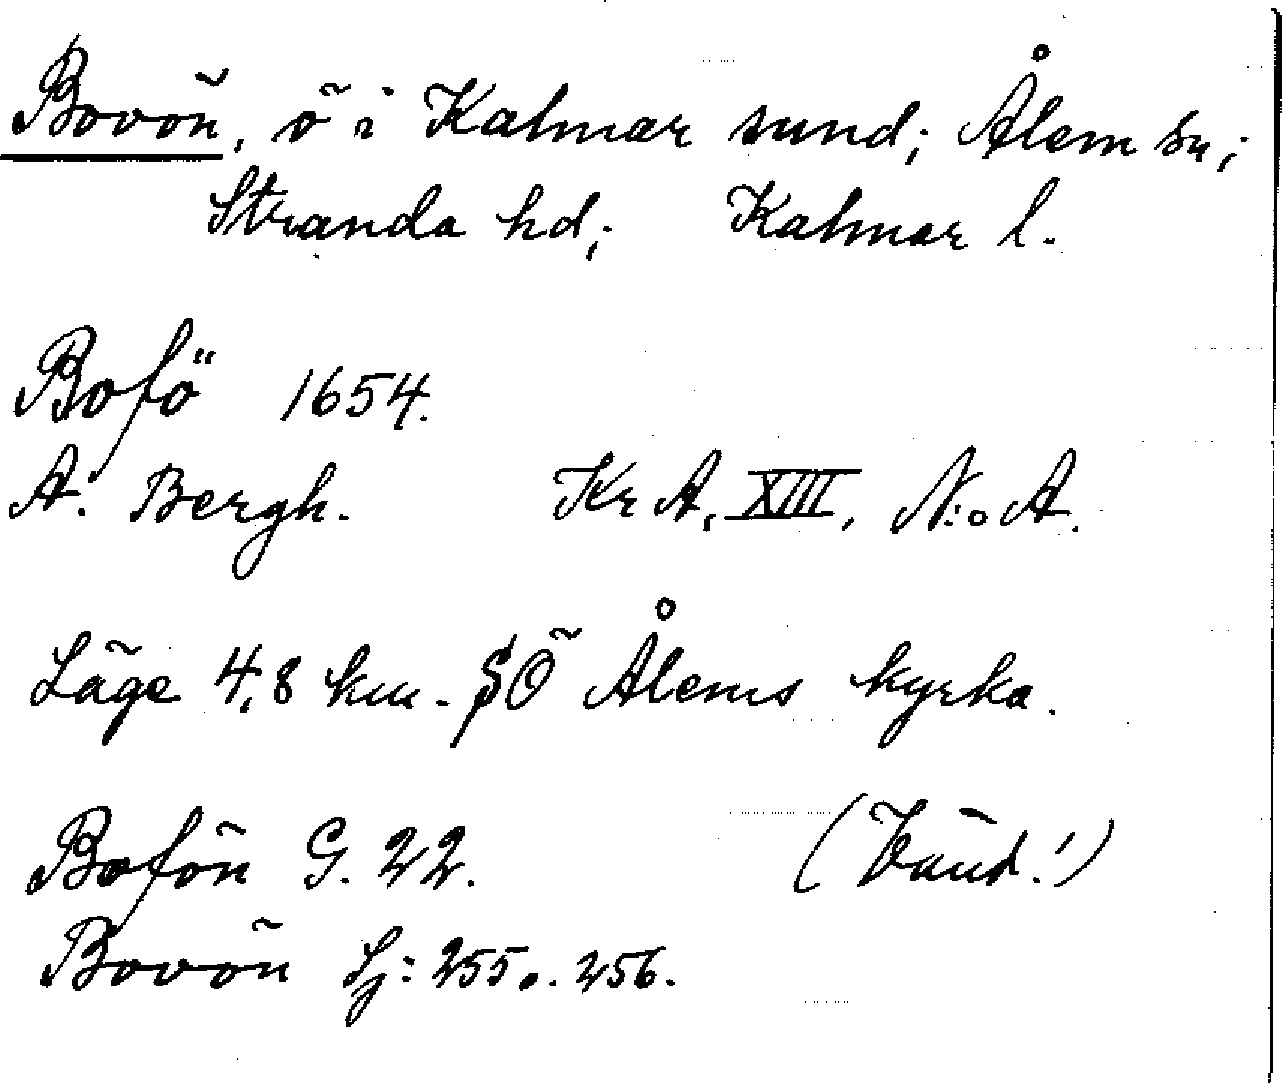 Bovön, ö i Kalmar sund; Ålem sn;
Stranda hd; Kalmar l.
Bofö 1654.
A. Bergh. Kr A, XIII, N:o A.
Läge 4,8 km. SÖ Ålems kyrka.
Bofön G. 22. (Vänd!)
Bovön Sj: 255 o. 256.